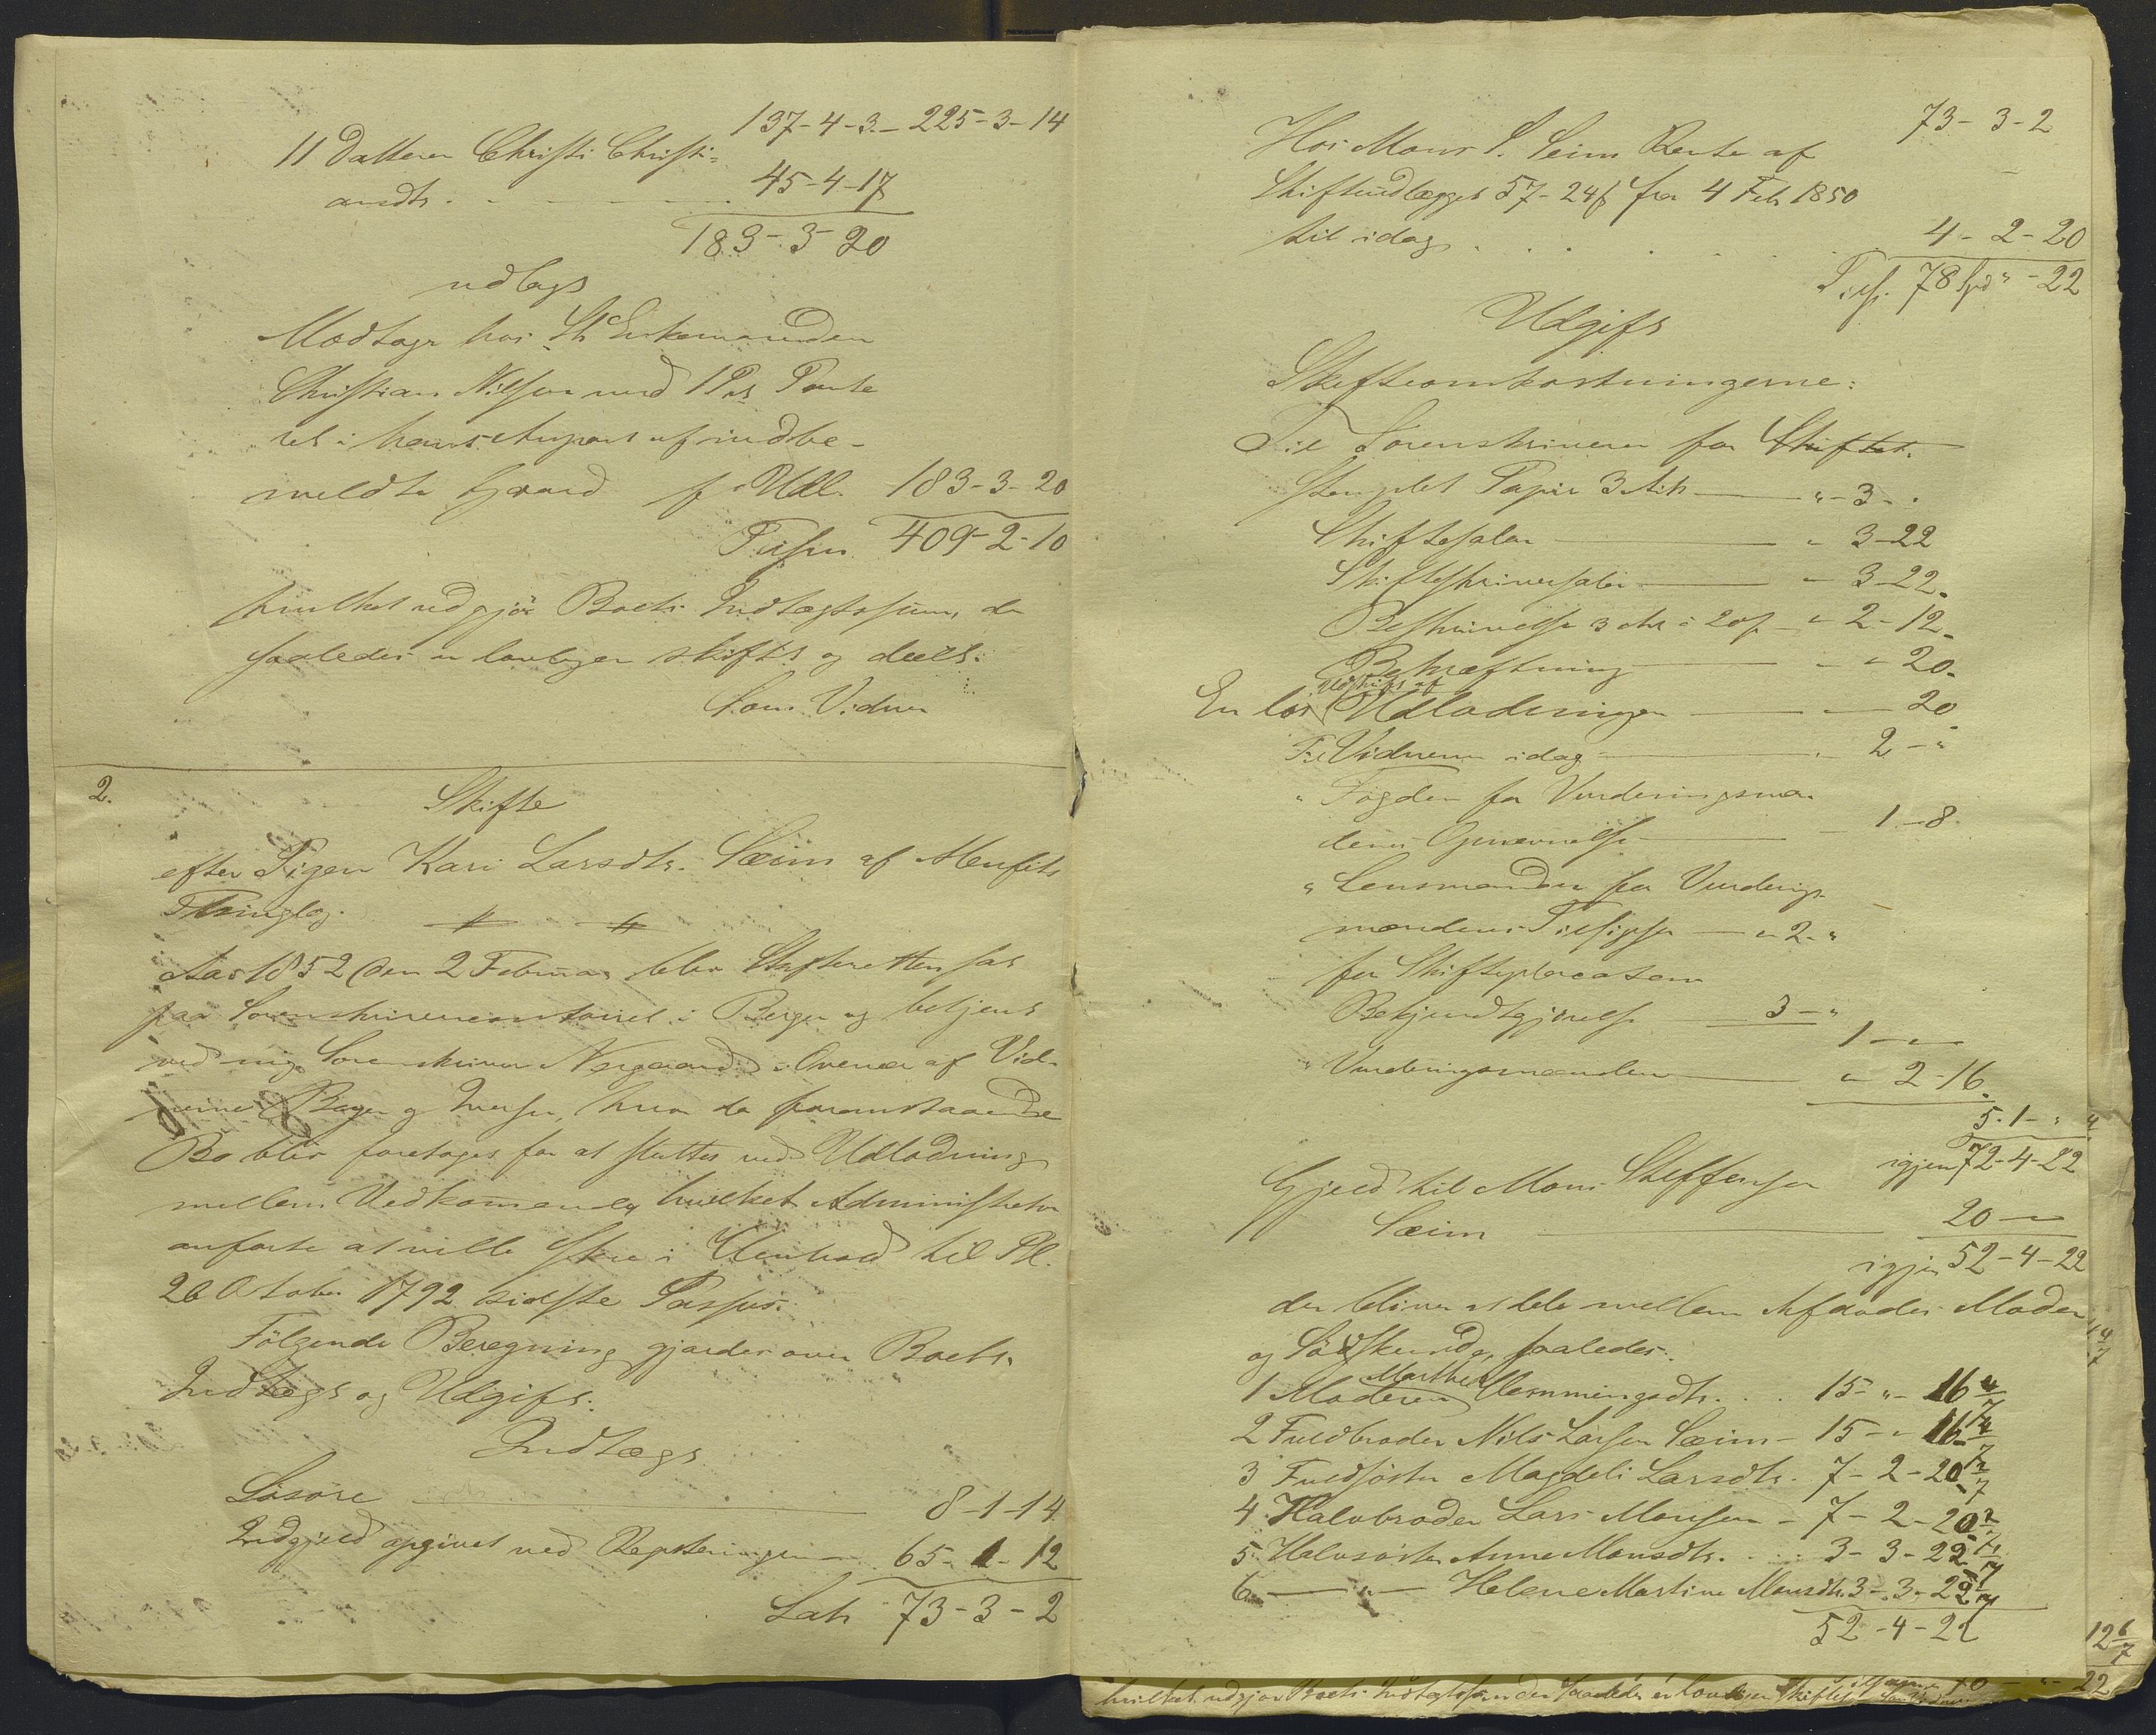 137-4-3 - 225-3-14
11 Datteren Christi Christi-
andtr. 45-4-17
183-3-20
udlagt
Modtager hos
Christian Nilsen med 1 Pr
tet i hans af indbe-
meldte Gaard f Udl. 183-3-20
Tilsm. 409-2-10
hvilket udgjør Boets Indtægtssum, der
saaledes er lovligen skiftet og deelt.
Som Vidner
2. Skifte
efter Pigen Kari Larsdtr. Sæim af
Thinglag.
Aar 1852 den 2 Februar blev Skifteretten sat
paa Sorenskrivercontoiret i Bergen og betjent
ved mig Sorenskriver Nergaard i Overvær af Vid-
nerne Bager og Iversen, hvor da foranstaaende
Bo blev foretaget for at sluttes ved Udlodning
mellem Vedkommende, hvilket Administrator
anførte at ville skee i Henhold til Pl.
26 October 1792 sidste Passus.
Følgende Beregning gjordes over Boets
Indtægt og Udgift:
Indtægt
Løsøre 8-1-14
Indgjeld opgivet ved Registeringen 65-1-12
Lat. 73-3-2
73-3-2
Hos Mons S. Seim Rente af
Skifteudlægget 57-24 f fra 4 Feb 1850
til idag 4-2-20
Tils. 78 Spd " - 22
Udgift
Skifteomkostningerne:
Til Sorenskriveren for Skiftet.
stemplet Papir 3 Ark " - 3 - "
Skiftesalær " 3-22
Skifteskriversalær " 3-22
Beskrivelse 3 Ark à 20 f " 2-12
Bekræftning " " 20
En løs Udskrift af Udlodningen 20
Til Vidnerne idag 2 - "
" Fogden for Vurderingsmæn-
denes Opnævnelse 1-8
" Lensmanden for Vurderings-
mændenes Tilsigelse " 2 - "
for Skifteplacatens
Bekjendtgjørelse 3 - "
1 - "
" Vurderingsmændene " 2-16
5-1 - "
igjen 72-4-22
Gjeld til Mons Steffensen
Sæim 20 -
igjen 52-4-22
der bliver at dele mellem Afdødes Moder
og Sødskende, saaledes:
1 Moderen Marthe Clemmingsdtr. 15 - " - 16 4/7
2 Fuldbroder Nils Larsen Sæim 15 - " - 16 4/7
3 Fuldsøster Magdeli Larsdtr. 7-2-20 2/7
4 Halvbroder Lars Monsen 7-2-20 2/7
5 Halvsøster Anne Monsdtr. 3-3-22 1/7
6 — " — Helene Martine Monsdtr. 3-3-22 1/7
52-4-22
12 6/7
22
hvilket udgjør Boets Indtægtssum der saaledes er lovligen skiftet